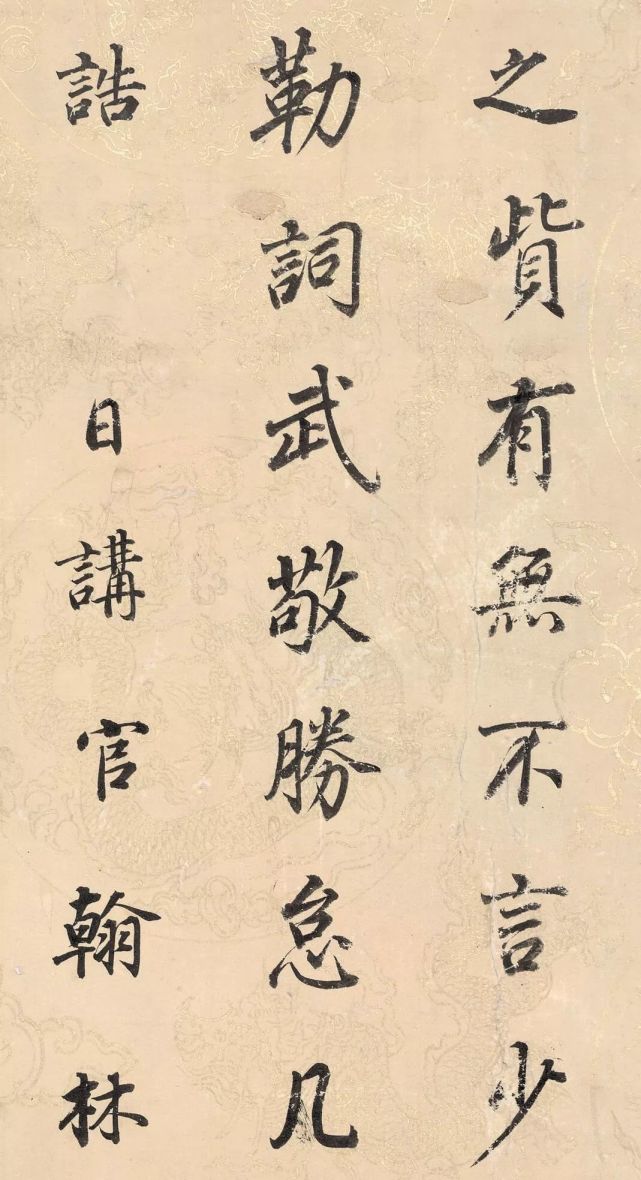 之貲有無不言少
勒詞武敬勝怠几
誥 日講官翰林